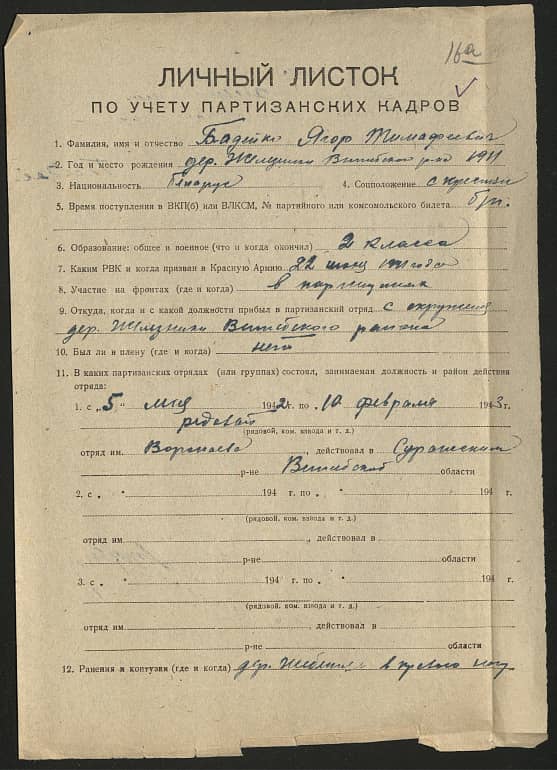 16а
ЛИЧНЫЙ ЛИСТОК
ПО УЧЕТУ ПАРТИЗАНСКИХ КАДРОВ
1. Фамилия, имя и отчество Бадейко Ягор Тимафеевич
2. Год и место рождения дер. Витебского р-на 1911
3. Национальность Беларус 4. Соцположение с крестьян
5. Время поступления в ВКП(б) или ВЛКСМ, № партийного или комсомольского билета б/п.
6. Образование: общее и военное (что и когда окончил) 2 класса
7. Каким РВК и когда призван в Красную Армию 22 июня года
8. Участие на фронтах (где и когда) в
9. Откуда, когда и с какой должности прибыл в партизанский отряд с окружения
дер. Витебского района
10. Был ли в плену (где и когда) нет
11. В каких партизанских отрядах (или группах) состоял, занимаемая должность и район действия
отряда:
1. с „5" мая 1942 г. по „10 февраля 1943 г.
редовой
(рядовой, ком. взвода и т. д.)
отряд им. Воронаева, действовал в Суражским
р-не Витебской области
2. с „ " 194 г. по „ " 194 г.
(рядовой, ком. взвода и т. д.)
отряд им. , действовал в
р-не области
3. с „ " 194 г. по „ " 194 г.
(рядовой, ком. взвода и т. д.)
отряд им. , действовал в
р-не области
12. Ранения и контузии (где и когда) дер. в ногу